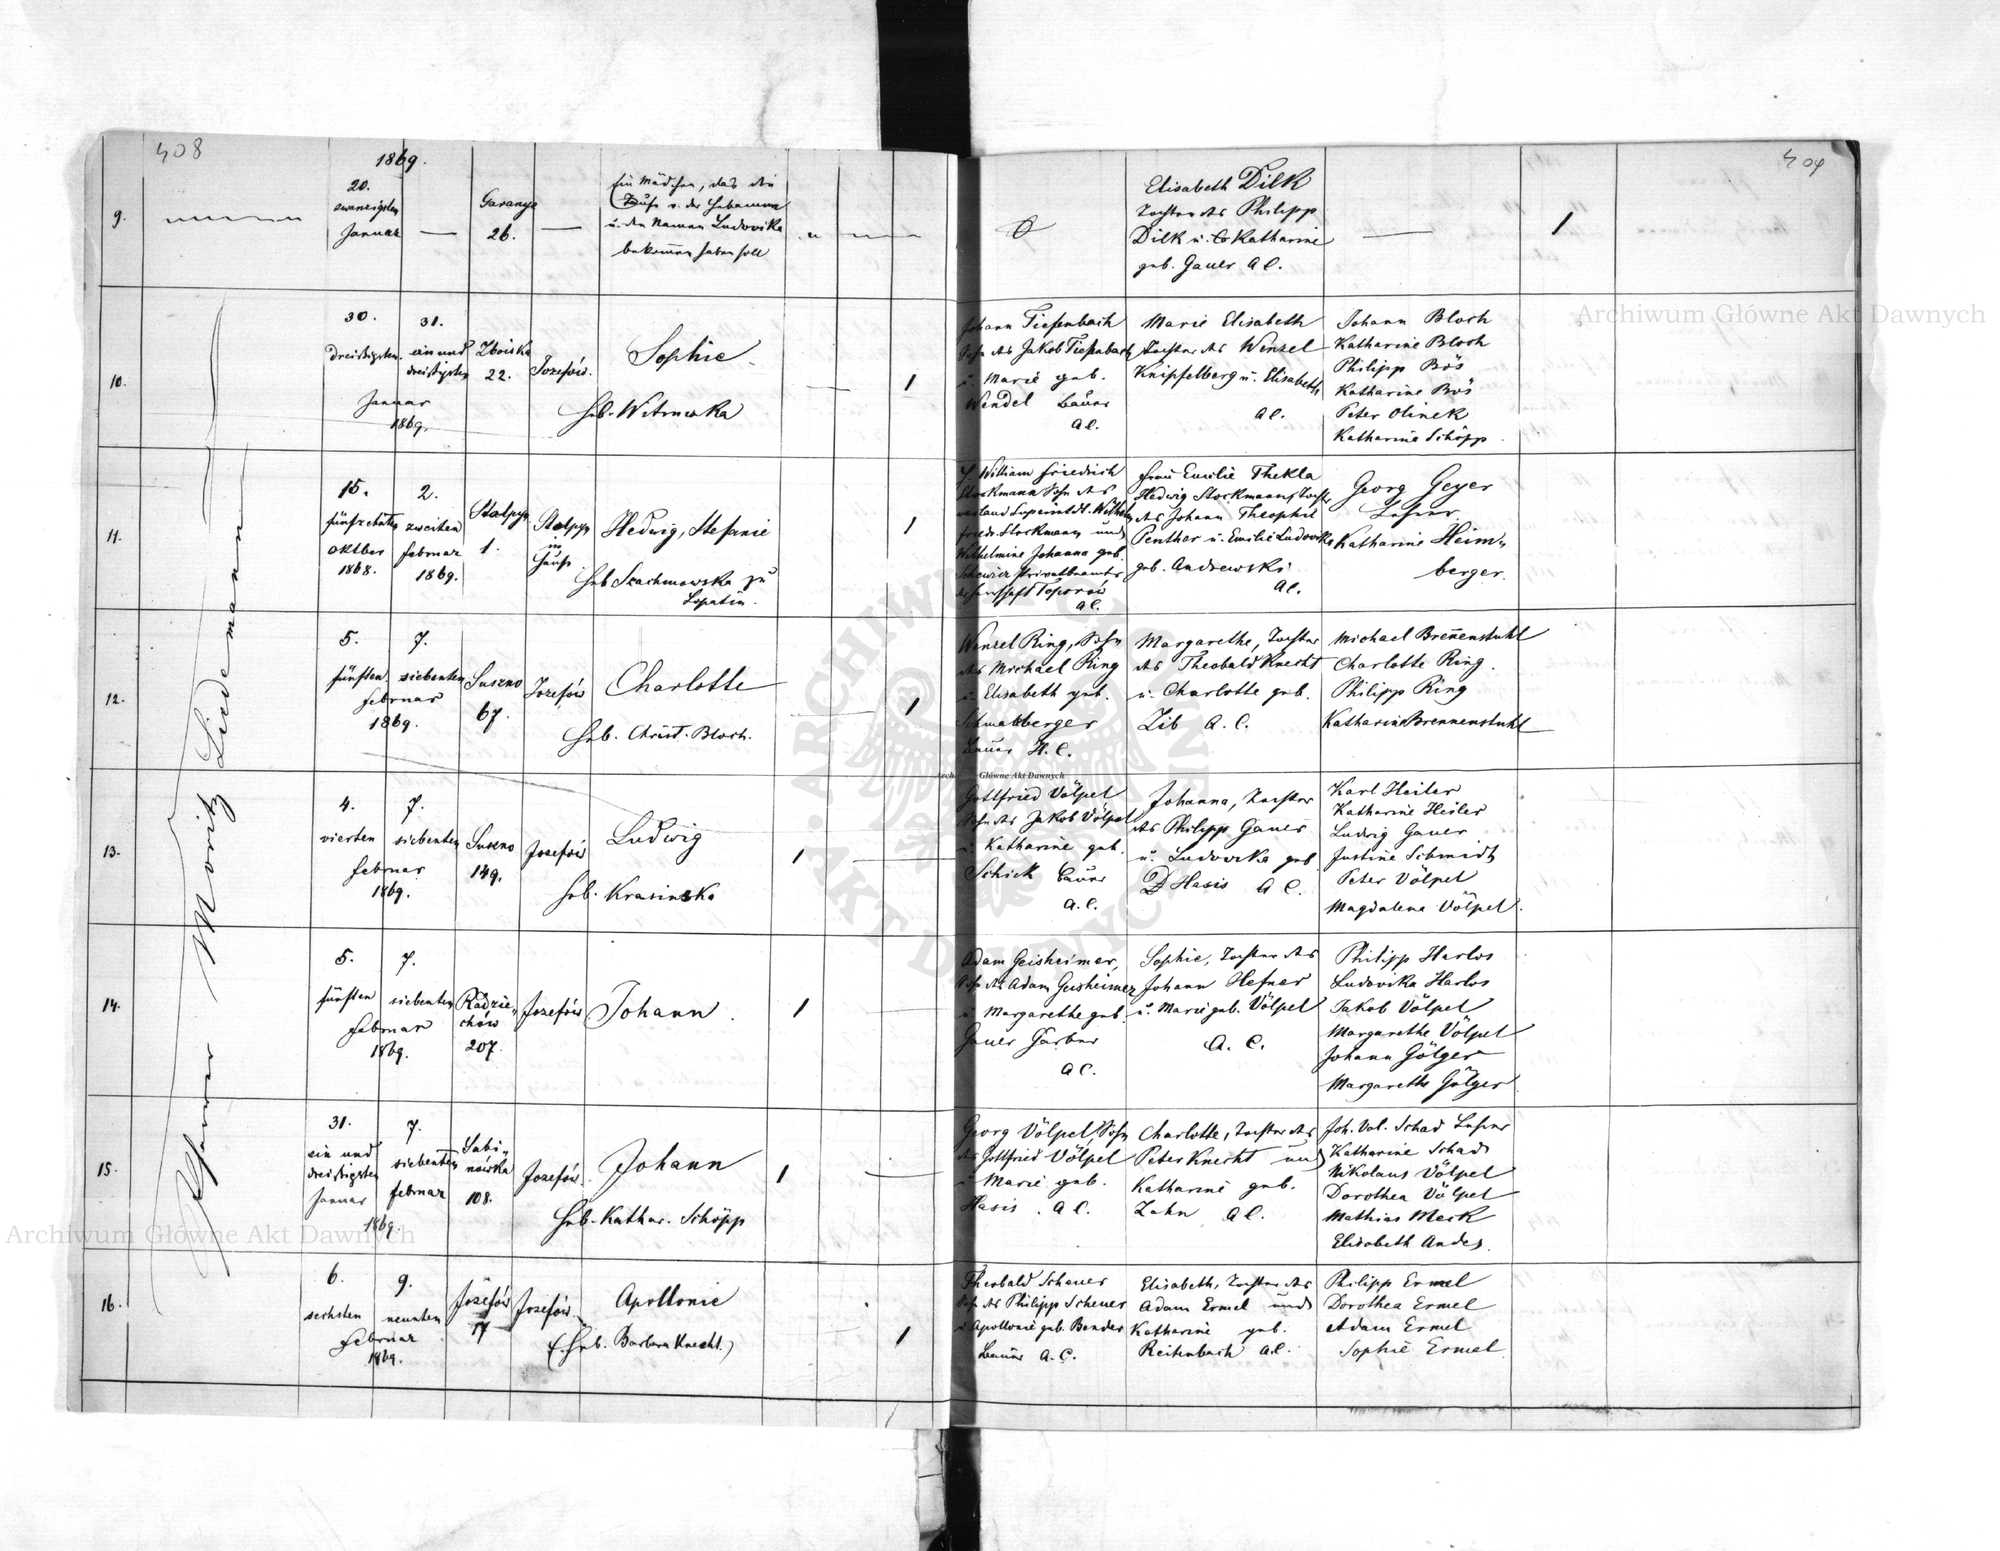 408
1869.
409
9.
20.
zwanzigsten
Januar
Garanye
26.
Ein Mädchen, das die
Taufe v. der Hebamme
u. den Namen Ludovika
bekommen haben soll
Elisabeth Dilk
Tochter des Philipp
Dilk u. Katharine
geb. Gauer A C.
1
10.
30.
31.
dreißigsten
ein und
dreißigsten
Januar
1869.
Zboiska
22.
Jozefów.
Sophie
Heb. Witwuka
1
Johann Tiefenbach
Sohn des Jakob Tiefenbach
u. Marie geb.
Wendel Bauer
A C.
Marie Elisabeth
Tochter des Wenzel
Knipfelberg u. Elisabeth
A C.
Johann Bloch
Katharine Bloch
Philipp Bös
Katharine Bös
Peter Olinek
Katharine Schöpp.
11.
15.
2.
fünfzehnten
zweiten
Oktber
Februar
1868.
1869.
Stolpyn
1.
Stolpyn
im
Hause
Hedwig, Stefanie
Heb Szachmowska zu
Lopatin.
1
William Friedrich
Stockmann Sohn des
weiland Superintdt. Wilhelm
Friedr. Stockmann und
Wilhelmine Johanna geb.
Privatbeamter
der Herrschaft Toporow
A C.
Frau Emilie Thekla
Hedwig Stockmann, Tochter
des Johann Theophil
Penther u. Emilie Ludovika
geb. Andrewski
A C.
Georg Geyer
Lehrer
Katharine Heim-
berger.
12.
5.
7.
fünften
siebenten
Februar
1869.
Suszno
67.
Jozefów
Charlotte
Heb. Christ. Bloch.
1
Wenzel Ring, Sohn
des Michael Ring
u. Elisabeth geb.
Schmalzberger
Bauer H. C.
Margarethe, Tochter
des Theobald Knecht
u. Charlotte geb.
Zib A. C.
Michael Brennenstuhl
Charlotte Ring.
Philipp Ring
Katharine Brennenstuhl
13.
4.
7.
vierten
siebenten
Februar
1869.
Suszno
149.
Jozefów
Ludwig
Heb. Krasinska
1
Gottfried Völpel
Sohn des Jakob Völpel
u. Katharine geb.
Schick Bauer
A. C.
Johanna, Tochter
des Philipp Gauer
u. Ludovika geb
Hasis A C.
Karl Heiler
Katharine Heiler
Ludwig Gauer
Justine Schmidt
Peter Völpel
Magdalena Völpel.
14.
5.
7.
fünften
siebenten
Februar
1869.
Radzie-
chów
207.
Jozefów
Johann.
1
Adam Geisheimer,
Sohn des Adam Geisheimer
u. Margarethe geb.
Gauer Gärber
A C.
Sophie, Tochter des
Johann Hefner
u. Marie geb. Völpel
A. C.
Philipp Harlos
Ludovika Harlos
Jakob Völpel
Margarethe Völpel
Johann Gölger
Margarethe Gölger
15.
31.
7.
ein und
dreißigsten
siebenten
Januar
Februar
1869.
Sabi-
nówka
108.
Jozefów.
Johann
Heb. Kathar. Schöpp
1
Georg Völpel, Sohn
des Gottfried Völpel
u Marie geb.
Hasis. A C.
Charlotte, Tochter des
Peter Knecht und
Katharine geb.
Zahn A C.
Joh. Val. Schad Lehrer
Katharine Schad
Nikolaus Völpel
Dorothea Völpel
Mathias Meck
Elisabeth Andes.
16.
6.
9.
sechsten
neunten
Februar
1869.
Jozefów
17
Jozefów.
Apollonie
(Heb. Barbara Knecht.)
1
Theobald Scheuer
Sohn des Philipp Scheuer
u. Apollonie geb. Bender
Bauer A. C.
Elisabeth, Tochter des
Adam Ermel und
Katharine geb.
Reitenbach A C.
Philipp Ermel
Dorothea Ermel
Adam Ermel
Sophie Ermel
Pfarrer Moritz Liedemann
Archiwum Główne Akt Dawnych
Archiwum Główne Akt Dawnych
Archiwum Główne Akt Dawnych
ARCHIWUM GŁÓWNE
AKT DAWNYCH